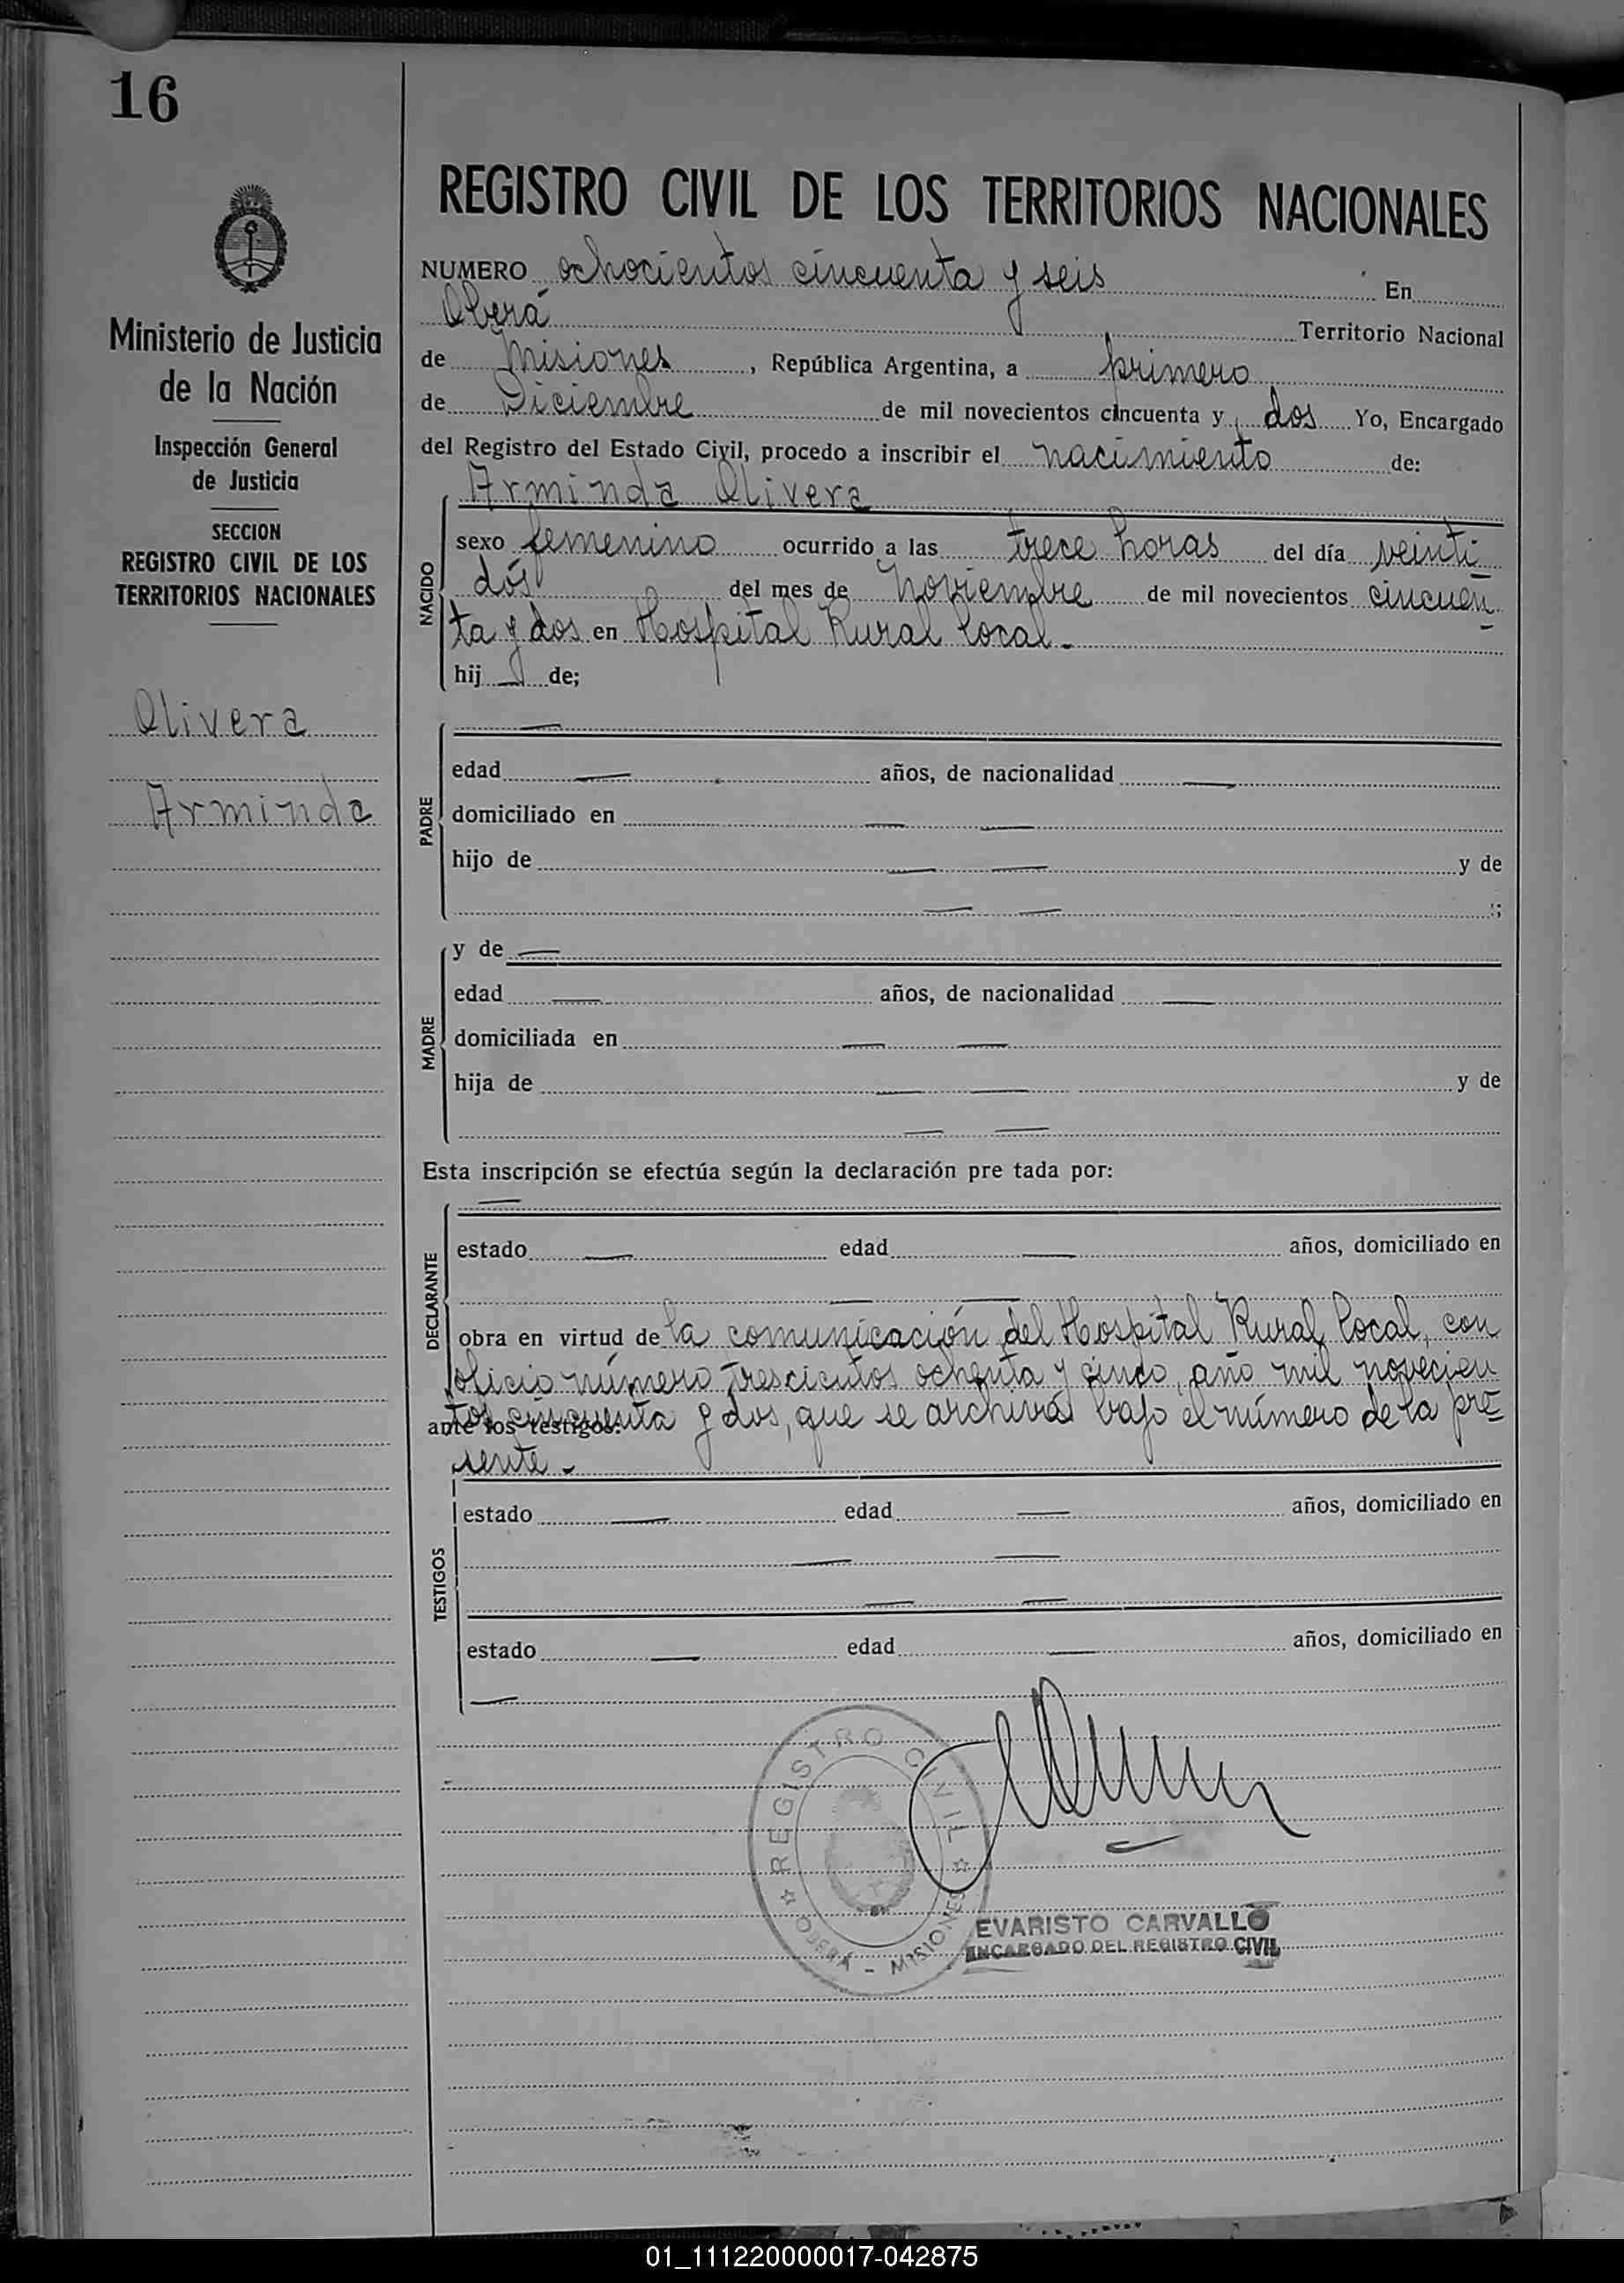 16
REGISTRO CIVIL DE LOS TERRITORIOS NACIONALES
NUMERO ochocientos cincuenta y seis En
Oberá Territorio Nacional
de Misiones, República Argentina, a primero
de Diciembre de mil novecientos cincuenta y dos Yo, Encargado
del Registro del Estado Civil, procedo a inscribir el nacimiento de:
Arminda Olivera
NACIDO
sexo femenino ocurrido a las trece horas del día veinti
dós del mes de Noviembre de mil novecientos cincuen
ta y dos en Hospital Rural Local.-
hij de;
PADRE
edad años, de nacionalidad
domiciliado en
hijo de y de
;
MADRE
y de
edad años, de nacionalidad
domiciliada en
hija de y de
Esta inscripción se efectúa según la declaración pre tada por:
DECLARANTE
estado edad años, domiciliado en
obra en virtud de la comunicación del Hospital Rural Local, con
oficio número trescientos ochenta y cinco, año mil novecien
tos cincuenta y dos, que se archiva bajo el número de la pre
ante los testigos:
sente.-
TESTIGOS
estado edad años, domiciliado en
estado edad años, domiciliado en
REGISTRO CIVIL
OBERÁ - MISIONES
EVARISTO CARVALLO
ENCARGADO DEL REGISTRO CIVIL
Ministerio de Justicia
de la Nación
Inspección General
de Justicia
SECCION
REGISTRO CIVIL DE LOS
TERRITORIOS NACIONALES
Olivera
Arminda
01_111220000017-042875